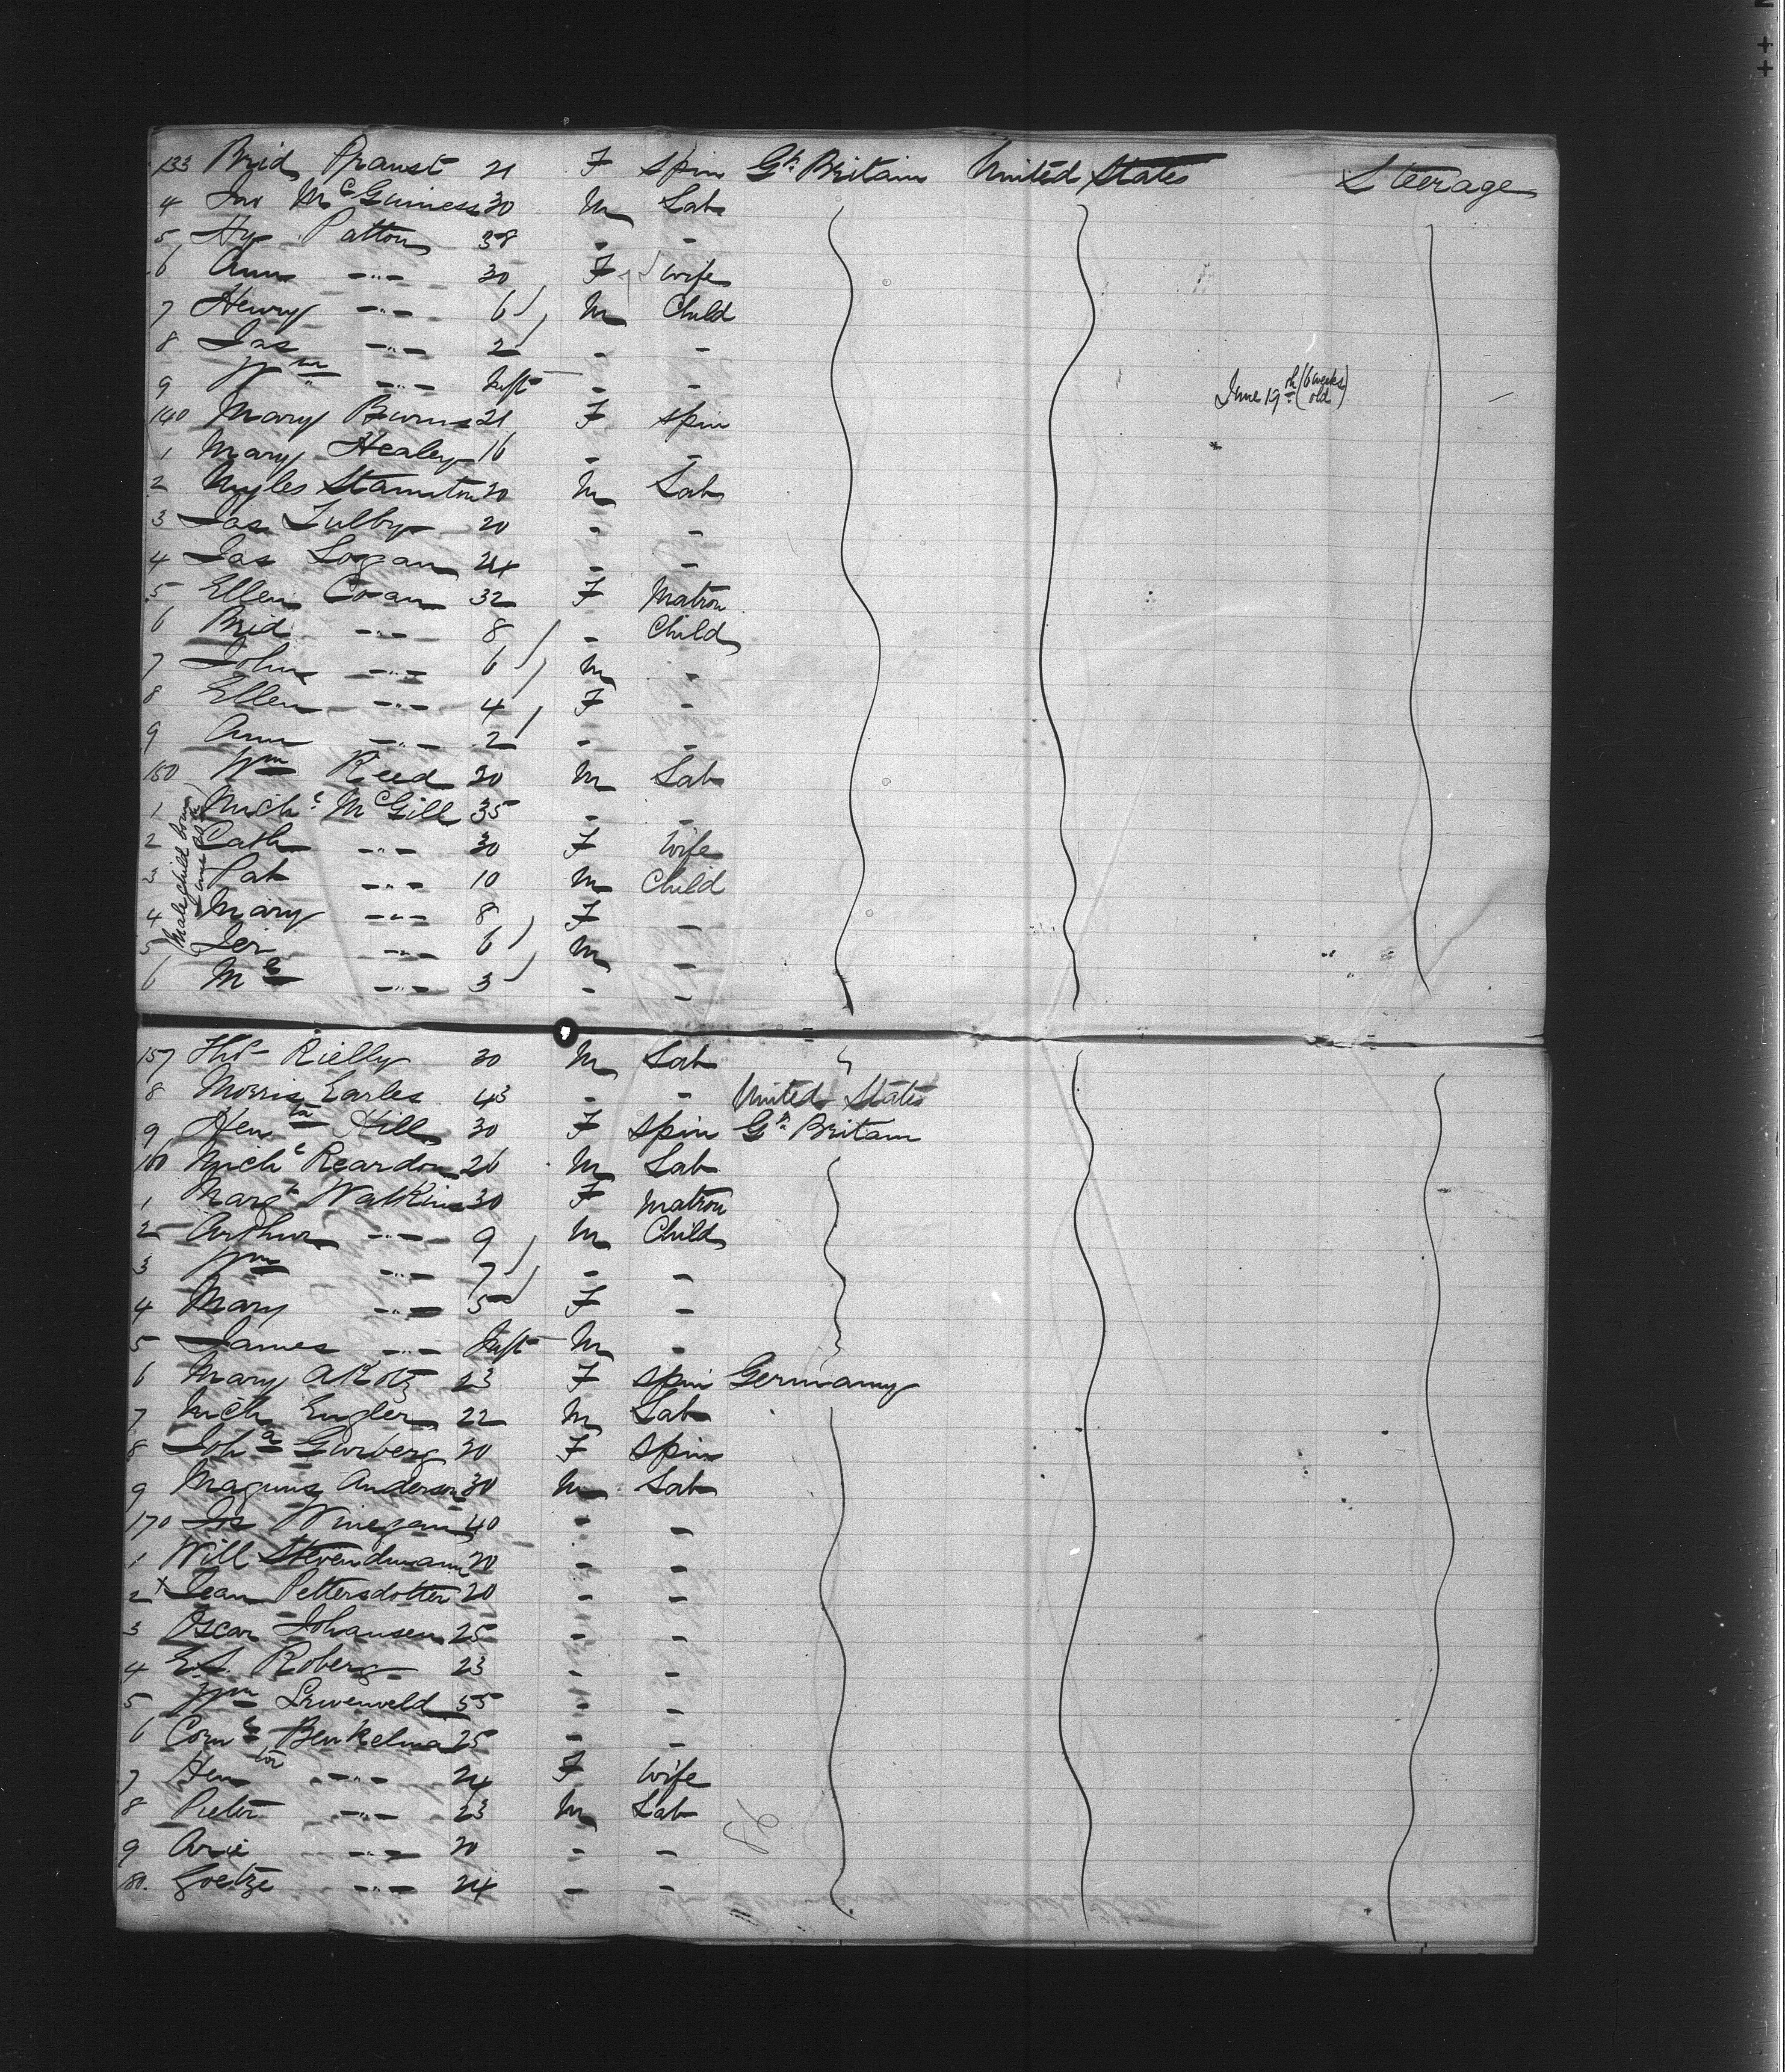 133 Brid Praust 21 F Spin Gt Britain United States Steerage
4 Jno McGuiness 30 M Lab
5 Hy Patton 38 - -
6 Ann -"- 30 F wife
7 Henry -"- 6 M Child
8 Jas -"- 2 - -
9 Wm -"- Inft - - June 19th (6 weeks old)
140 Mary Burns 21 F Spin
1 Mary Healey 16 - -
2 Myles Staunton 20 M Lab
3 Jas 20 - -
4 Jas Logan 24 - -
5 Ellen Coan 32 F Matron
6 Brid -"- 8 - Child
7 John -"- 6 M -
8 Ellen -"- 4 F -
9 Ann -"- 2 - -
150 Wm Reed 30 M Lab
1 Michl McGill 35 - -
2 Cath -"- 30 F Wife
3 Pat -"- 10 M Child
4 Mary -"- 8 F -
5 Jer -"- 6 M -
6 Ml -"- 3 - -
(Male child born June
157 Thos Rielly 30 M Lab
8 Morris Earles 43 - - United States
9 Henta Hill 30 F Spin Gt Britain
160 Michl Reardon 26 M Lab
1 Margt Watkins 30 F Matron
2 Arthur -"- 9 M Child
3 Wm -"- 7 - -
4 Mary -"- 5 F -
5 James -"- Inft M -
6 Mary A Kotz 23 F Spin Germany
7 Mich Engler 22 M Lab
8 Joha Gurberg 30 F Spin
9 Magnus Anderson 30 M Lab
170 Jos Winegan 40 - -
1 Will 20 - -
2 + Jean Pettersdotter 20 - -
3 Oscar Johansen 25 - -
4 Roberg 23 - -
5 Wm 55 - -
6 Corns Benkelma 25 - -
7 Henta -"- 24 F Wife
8 Pieter -"- 23 M Lab
9 Arie -"- 20 - -
80. Goetze -"- 24 - -